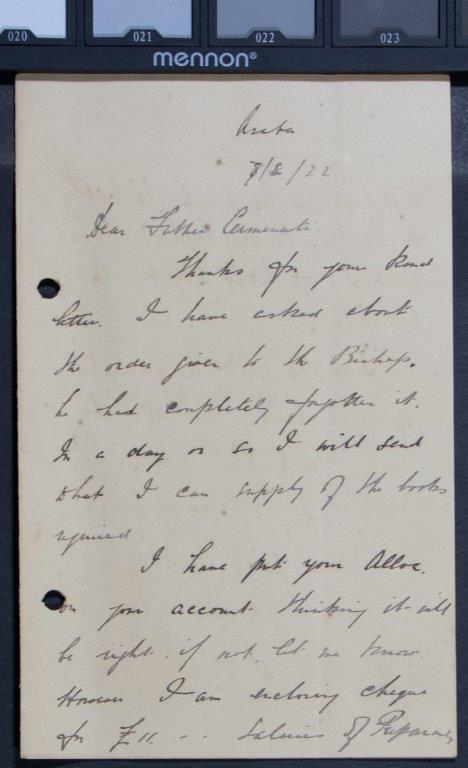 020 021 022 023
mennon®
Asaba
8/8/22
Dear Father Cermenati.
Thanks for your kind
letter. I have asked about
the order given to the Bishop.
he had completely forgotten it.
In a day or so I will send
what I can supply of the books
required.
I have put your Alloc.
on your account thinking it will
be right. if not, let me know.
However I am enclosing cheque
for £11 - - Salaries of